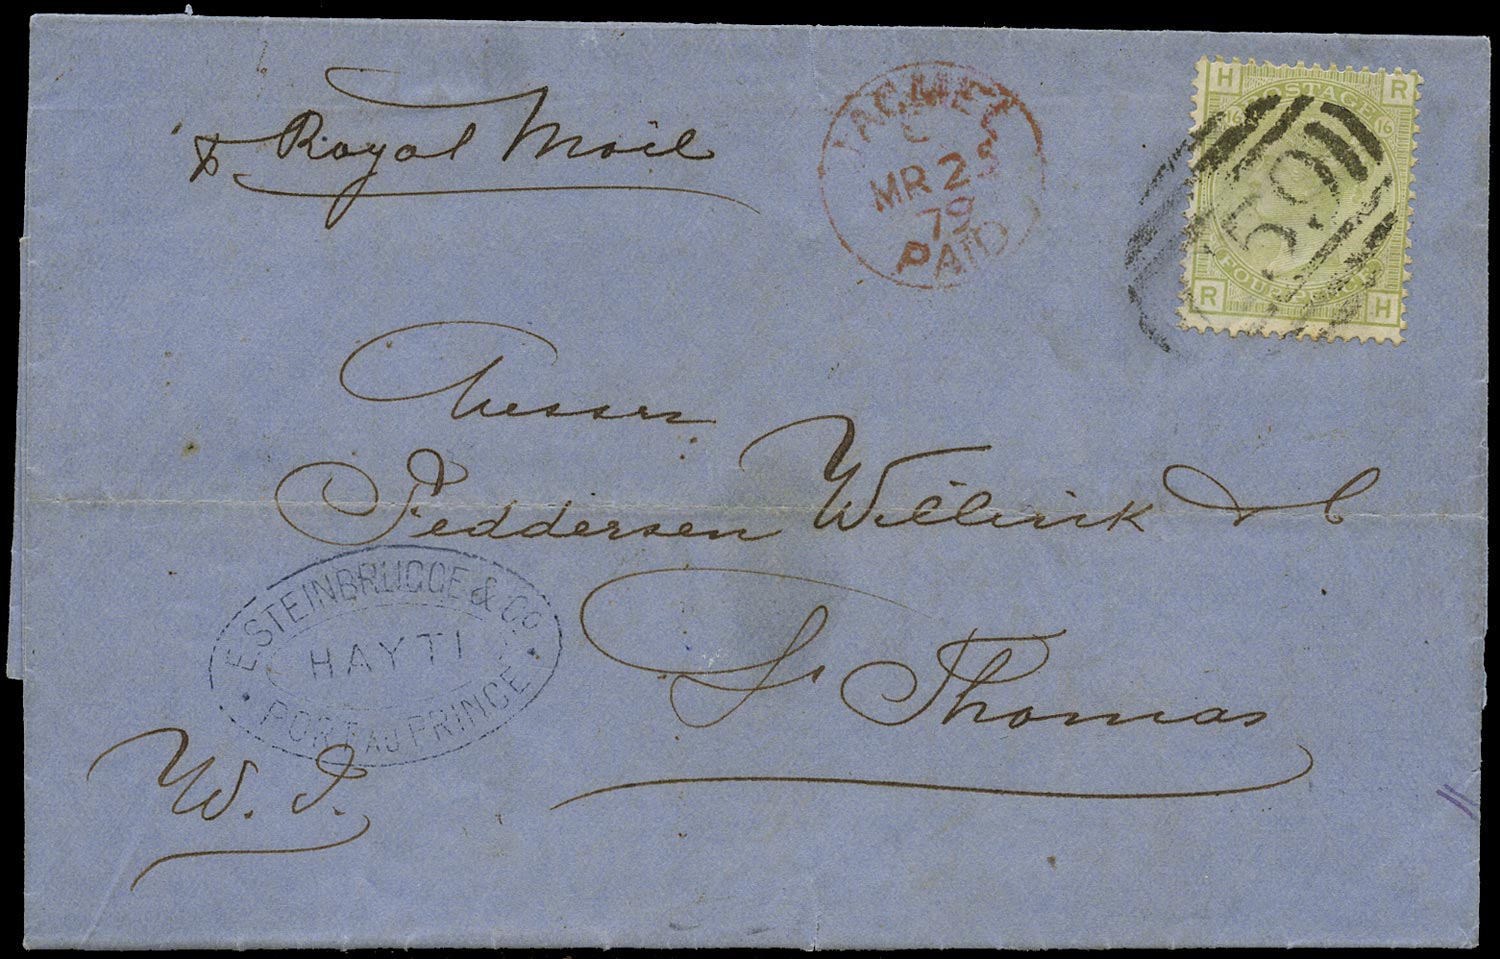 p Royal Mail
JACMEL
C
MR 28
79
PAID
H R
POSTAGE
16 16
C59
FOUR PENCE
R H
Messrs
Feddersen Willink & C
St Thomas
W. I.
E. STEINBRÜGGE & CO.
HAYTI
PORT AU PRINCE